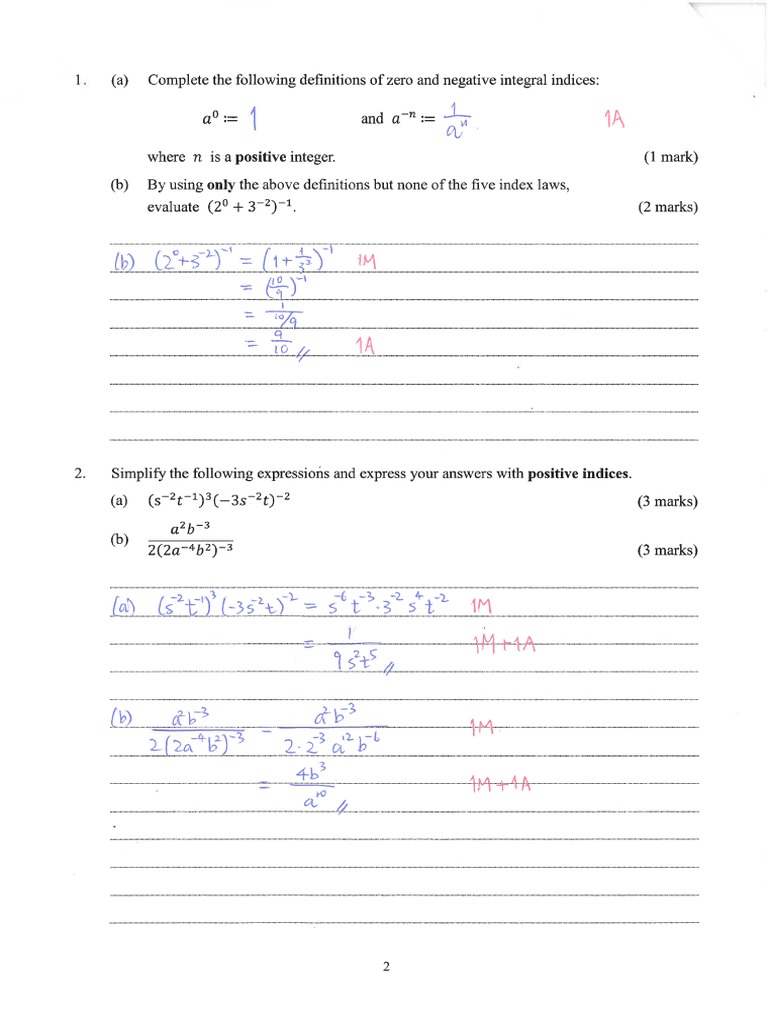 1. (a) Complete the following definitions of zero and negative integral indices:
a⁰ := 1 and a⁻ⁿ := 1/aⁿ. 1A
where n is a positive integer. (1 mark)
(b) By using only the above definitions but none of the five index laws,
evaluate (2⁰ + 3⁻²)⁻¹. (2 marks)
(b) (2⁰+3⁻²)⁻¹ = (1+1/3²)⁻¹ 1M
= (10/9)⁻¹
= 1/(10/9)
= 9/10 // 1A
2. Simplify the following expressions and express your answers with positive indices.
(a) (s⁻²t⁻¹)³(−3s⁻²t)⁻² (3 marks)
(b) a²b⁻³/2(2a⁻⁴b²)⁻³ (3 marks)
(a) (s⁻²t⁻¹)³(-3s⁻²t)⁻² = s⁻⁶t⁻³·3⁻²s⁴t⁻² 1M
= 1/9s²t⁵ // 1M+1A
(b) a²b⁻³/2(2a⁻⁴b²)⁻³ = a²b⁻³/2·2⁻³a¹²b⁻⁶ 1M
= 4b³/a¹⁰ // 1M+1A
2